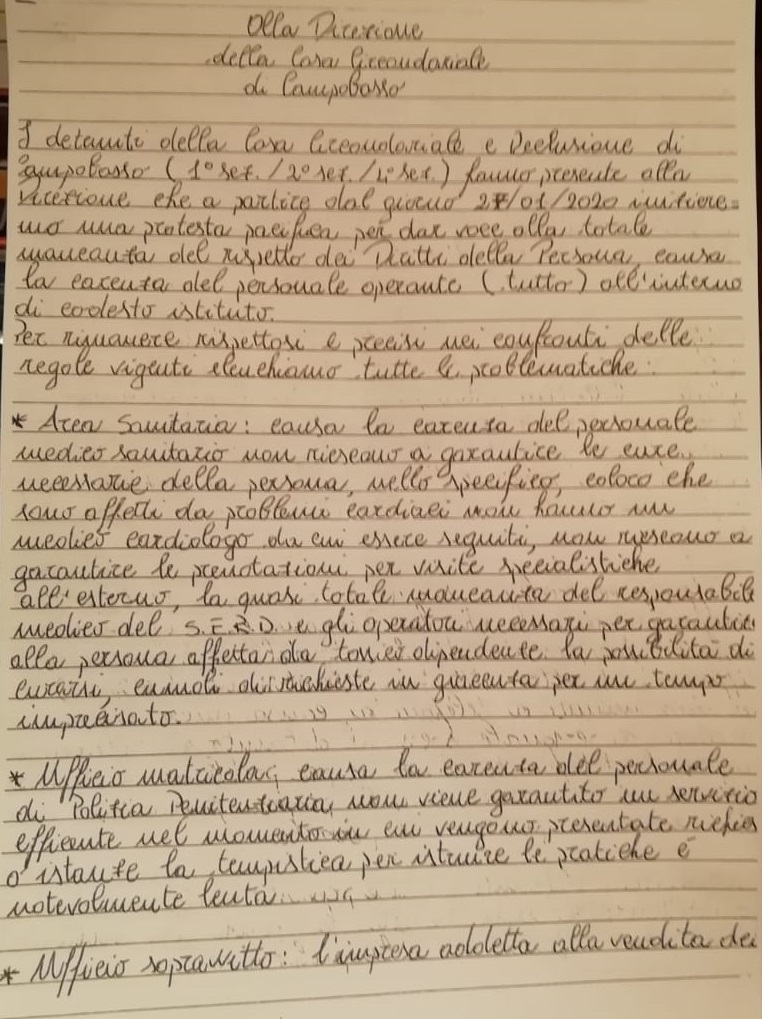 Alla Direzione
della Casa Circondariale
di Campobasso
I detenuti della Casa Circondariale e Reclusione di
Campobasso (1° sez. / 2° sez. / 4° sez.) fanno presente alla
direzione che a partire dal giorno 27/01/2020 iniziere=
mo una protesta pacifica per dar voce alla totale
mancanza del rispetto dei Diritti della Persona, causa
la carenza del personale operante (tutto) all'interno
di codesto istituto.
Per rimanere rispettosi e precisi nei confronti delle
regole vigenti elenchiamo tutte le problematiche:
* Area Sanitaria: causa la carenza del personale
medico sanitario non riescono a garantire le cure
necessarie della persona, nello specifico, coloro che
sono affetti da problemi cardiaci non hanno un
medico cardiologo da cui essere seguiti, non riescono a
garantire le prenotazioni per visite specialistiche
all'esterno, la quasi totale mancanza del responsabile
medico del S.E.R.D. e gli operatori necessari per garantire
alla persona affetta da tossico dipendente la possibilità di
curarsi, cumoli di richieste in giacenza per un tempo
imprecisato.
* Ufficio matricola; causa la carenza del personale
di Polizia Penitenziaria, non viene garantito un servizio
efficente nel momento in cui vengono presentate richies
o istanze la tempistica per istruire le pratiche è
notevolmente lenta.
* Ufficio sopravvitto: l'impresa addetta alla vendita dei